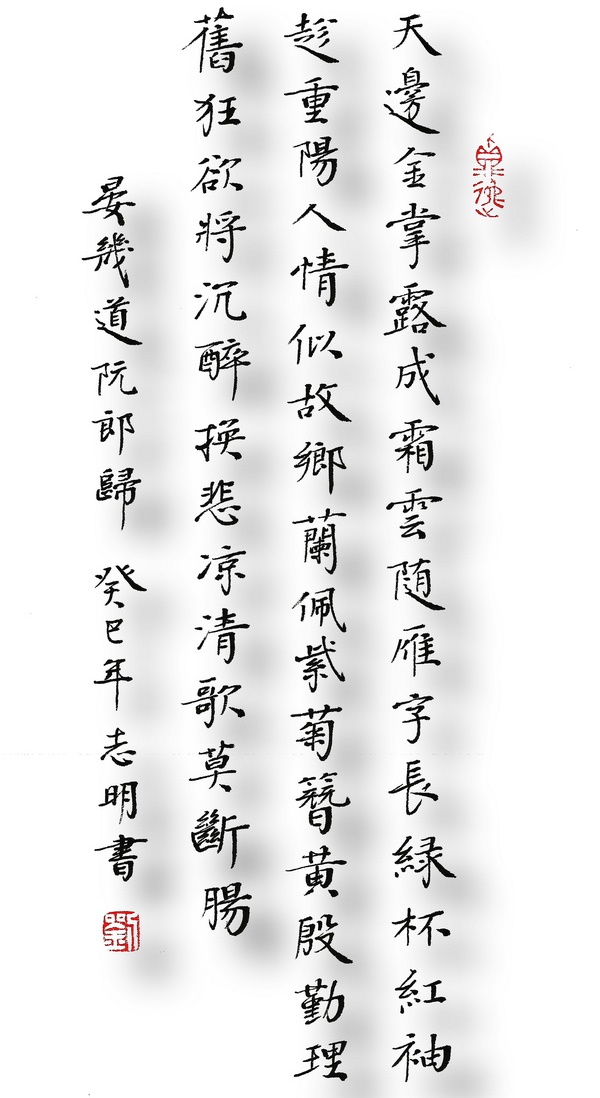 天邊金掌露成霜雲随雁字長緑杯紅袖
趁重陽人情似故鄉蘭佩紫菊簪黄殷勤理
舊狂欲將沉醉換悲凉清歌莫斷腸
晏幾道阮郎歸 癸巳年志明書
劉